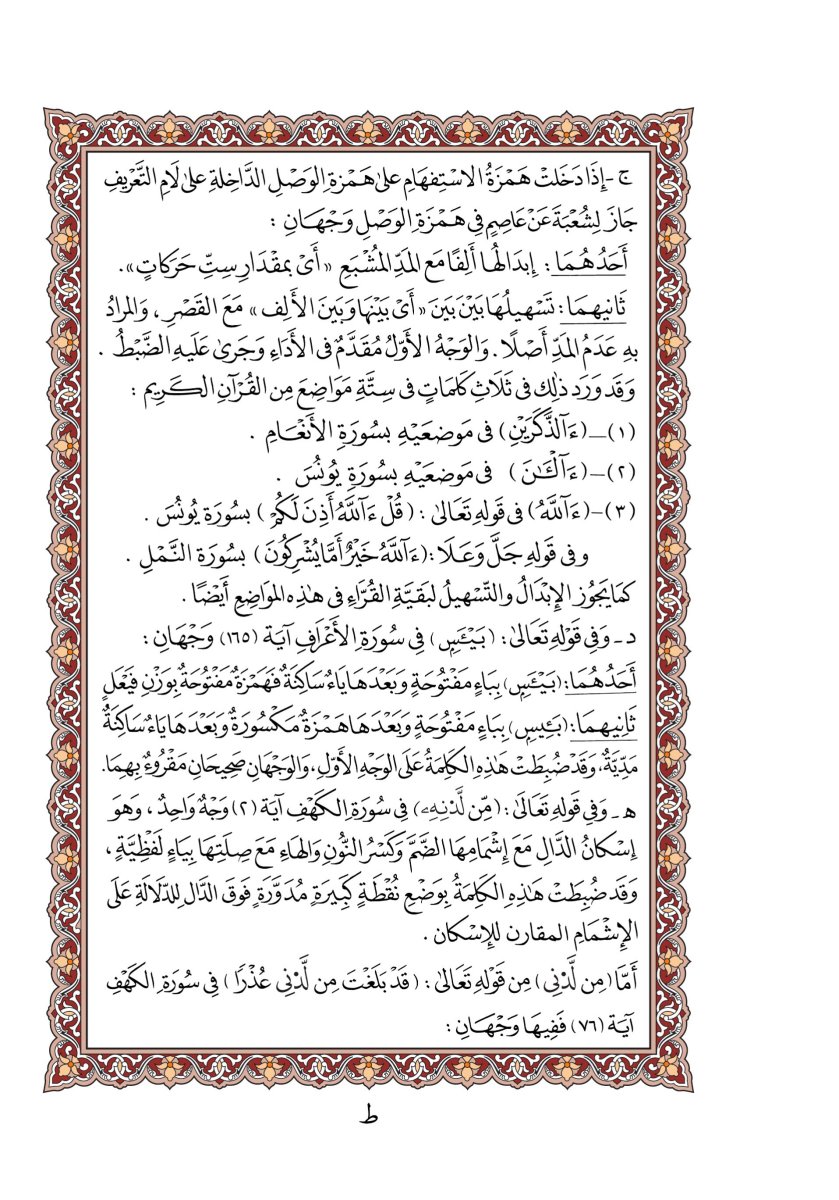 ج - إِذَا دَخَلَتْ هَمْزَةُ الاسْتِفهَامِ عَلىٰ هَمْزةِ الوَصْلِ الدَّاخِلةِ عَلىٰ لَامِ التَّعْرِيفِ
جَازَ لِشُعْبَةَ عَنْ عَاصِمٍ فِي هَمْزَةِ الوَصْلِ وَجْهَانِ :
أَحَدُهُمَا : إِبدَالُهَا أَلِفًا مَعَ المَدِّ المُشْبَعِ « أَىْ بِمقْدَارِ سِتِّ حَرَكاتٍ ».
ثَانِيهِمَا : تَسْهِيلُهَا بَيْنَ بَيْنَ « أَىْ بَيْنَهَا وَبَينَ الأَلِفِ » مَعَ القَصْرِ ، وَالمرادُ
بهِ عَدَمُ المَدِّ أَصْلًا . وَالوَجْهُ الأَوَّلُ مُقَدَّمٌ فى الأَدَاءِ وَجَرىٰ عَلَيهِ الضَّبْطُ .
وَقَد وَرَدَ ذٰلِكَ فى ثَلَاثِ كَلمَاتٍ فى سِتَّةِ مَوَاضِعَ مِن القُرْآنِ الكَرِيمِ :
(١) - (ءَآلذَّكَرَيْنِ) فى مَوضعَيْهِ بسُورَةِ الأَنْعَامِ .
(٢) - (ءَآلْـَٰٔنَ) فى مَوضعَيْهِ بسُورَةِ يُونُسَ .
(٣) - (ءَآللَّهُ) فى قَولهِ تَعَالىٰ : (قُلْ ءَآللَّهُ أَذِنَ لَكُمْ) بسُورَةِ يُونُسَ .
وفى قَولهِ جَلَّ وَعَلَا : (ءَآللَّهُ خَيْرٌ أَمَّا يُشْرِكُونَ) بسُورَةِ النَّمْلِ .
كمَا يَجُوزُ الإِبْدَالُ والتَّسْهِيلُ لبَقيَّةِ القُرَّاءِ فى هٰذِهِ المَوَاضِعِ أَيْضًا .
د - وَفِي قَوْلهِ تَعَالىٰ : (بَيْـَٔسٍ) فِي سُورَةِ الأَعْرَافِ آيَة (١٦٥) وَجْهَانِ :
أَحَدُهُمَا : (بَيْـَٔسٍ) بِبَاءٍ مَفْتُوحَةٍ وَبَعْدَهَا يَاءٌ سَاكِنَةٌ فَهَمْزَةٌ مَفْتُوحَةٌ بِوَزْنِ فَيْعَلٍ
ثَانِيهِمَا : (بَـِٔيسٍ) بِبَاءٍ مَفْتُوحَةٍ وَبَعْدَهَا هَمْزَةٌ مَكْسُورَةٌ وَبَعْدَهَا يَاءٌ سَاكِنَةٌ
مَدِّيَّةٌ، وَقَد ضُبِطَتْ هَٰذِهِ الكَلِمَةُ عَلَى الوَجْهِ الأَوَّلِ، وَالوَجْهَانِ صَحِيحَانِ مَقْرُوءٌ بِهِمَا.
هـ - وَفِي قَولهِ تَعَالَىٰ : (مِّن لَّدْنِهِۦ) فِي سُورَةِ الكَهْفِ آيَة (٢) وَجْهٌ وَاحِدٌ، وَهوَ
إِسْكَانُ الدَّالِ مَعَ إِشْمَامِهَا الضَّمَّ وَكَسْرُ النُّونِ وَالهَاءِ مَعَ صِلَتِهَا بِيَاءٍ لَفْظِيَّةٍ ،
وَقَد ضُبِطَتْ هَٰذِهِ الكَلِمَةُ بِوَضْعِ نُقْطَةٍ كَبِيرَةٍ مُدَوَّرَةٍ فَوقَ الدَّالِ لِلدِّلَالَةِ عَلَى
الإِشْمَامِ المقارنِ للإِسْكانِ .
أَمَّا (مِن لَّدْنِى) مِن قَوْلهِ تَعَالىٰ : (قَدْ بَلَغْتَ مِن لَّدْنِى عُذْرًا) فِي سُورَةِ الكَهْفِ
آيَة (٧٦) فَفِيهَا وَجْهَانِ :
ط